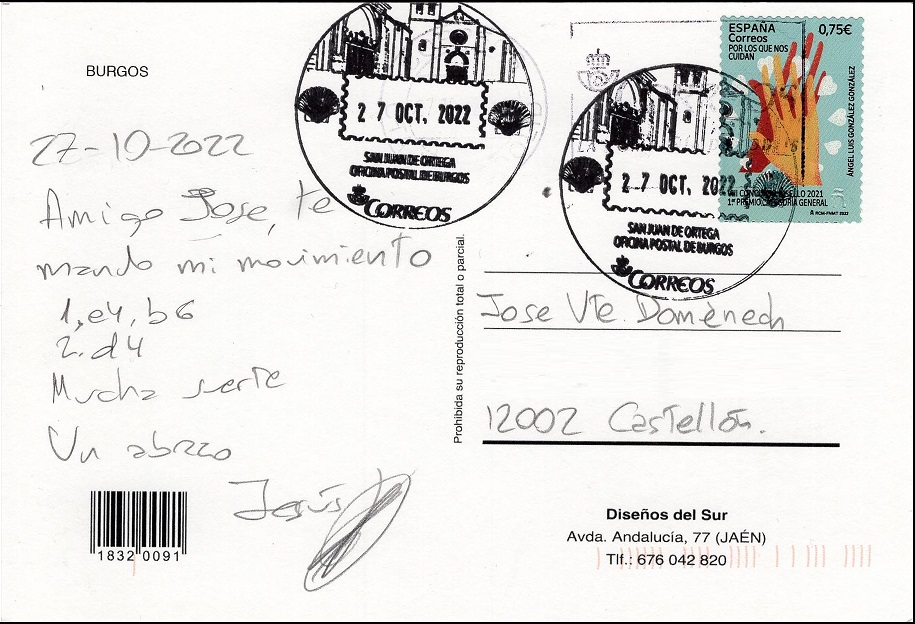 BURGOS
27-10-2022
Amigo Jose, te
mando mi movimiento
1, e4, b6
2. d4
Mucha suerte
Un abrazo
Jesús
1832 0091
27 OCT. 2022
SAN JUAN DE ORTEGA
OFICINA POSTAL DE BURGOS
CORREOS
27 OCT. 2022
SAN JUAN DE ORTEGA
OFICINA POSTAL DE BURGOS
CORREOS
ESPAÑA 0,75€
Correos
POR LOS QUE NOS
CUIDAN
ÁNGEL LUIS GONZÁLEZ GONZÁLEZ
SELLO 2021
1er PREMIO, GENERAL
RCM-FNMT 2022
Prohibida su reproducción total o parcial.
Jose Vte. Domènech
12002 Castellón.
Diseños del Sur
Avda. Andalucía, 77 (JAÉN)
Tlf.: 676 042 820